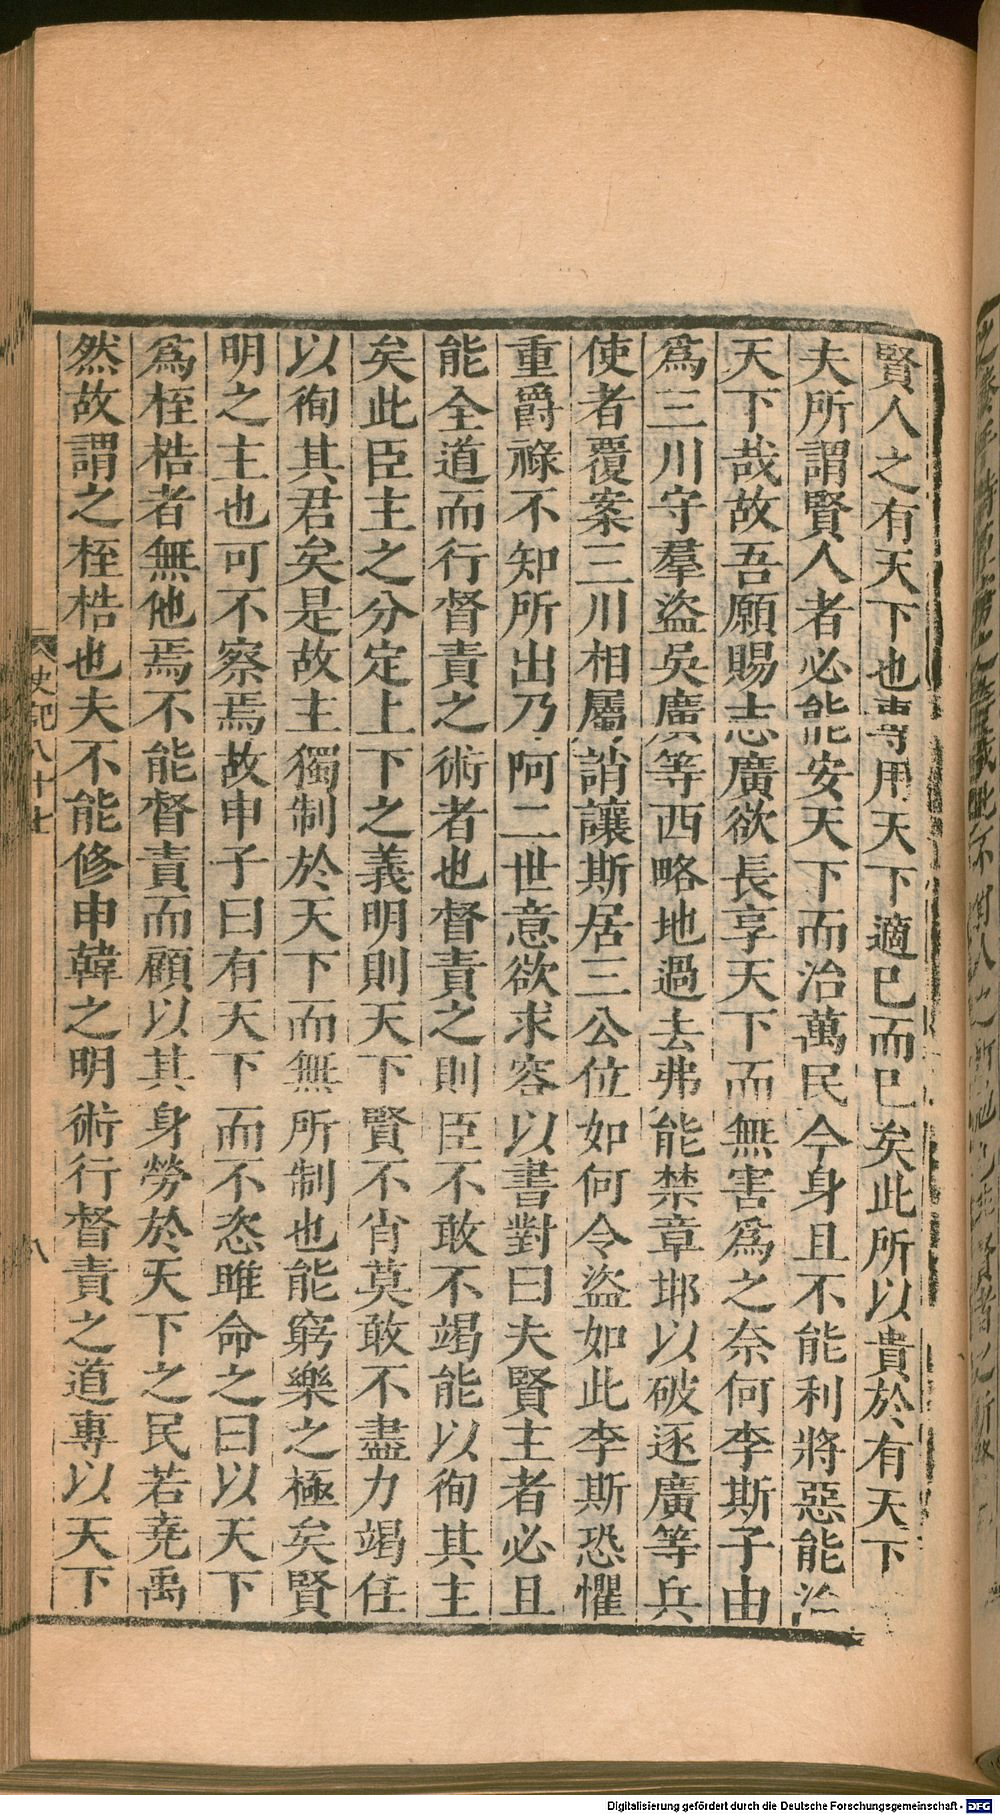 賢人之有天下也專用天下適已而已矣此所以貴於有天下
夫所謂賢人者必能安天下而治萬民今身且不能利將惡能治
天下哉故吾願賜志廣欲長享天下而無害爲之奈何李斯子由
爲三川守羣盜吳廣等西略地過去弗能禁章邯以破逐廣等兵
使者覆案三川相屬誚讓斯居三公位如何令盜如此李斯恐懼
重爵祿不知所出乃阿二世意欲求容以書對曰夫賢主者必且
能全道而行督責之術者也督責之則臣不敢不竭能以徇其主
矣此臣主之分定上下之義明則天下賢不肖莫敢不盡力竭任
以徇其君矣是故主獨制於天下而無所制也能窮樂之極矣賢
明之主也可不察焉故申子曰有天下而不恣睢命之曰以天下
爲桎梏者無他焉不能督責而顧以其身勞於天下之民若堯禹
然故謂之桎梏也夫不能修申韓之明術行督責之道專以天下
史記八十七
八
Digitalisierung gefördert durch die Deutsche Forschungsgemeinschaft - DFG